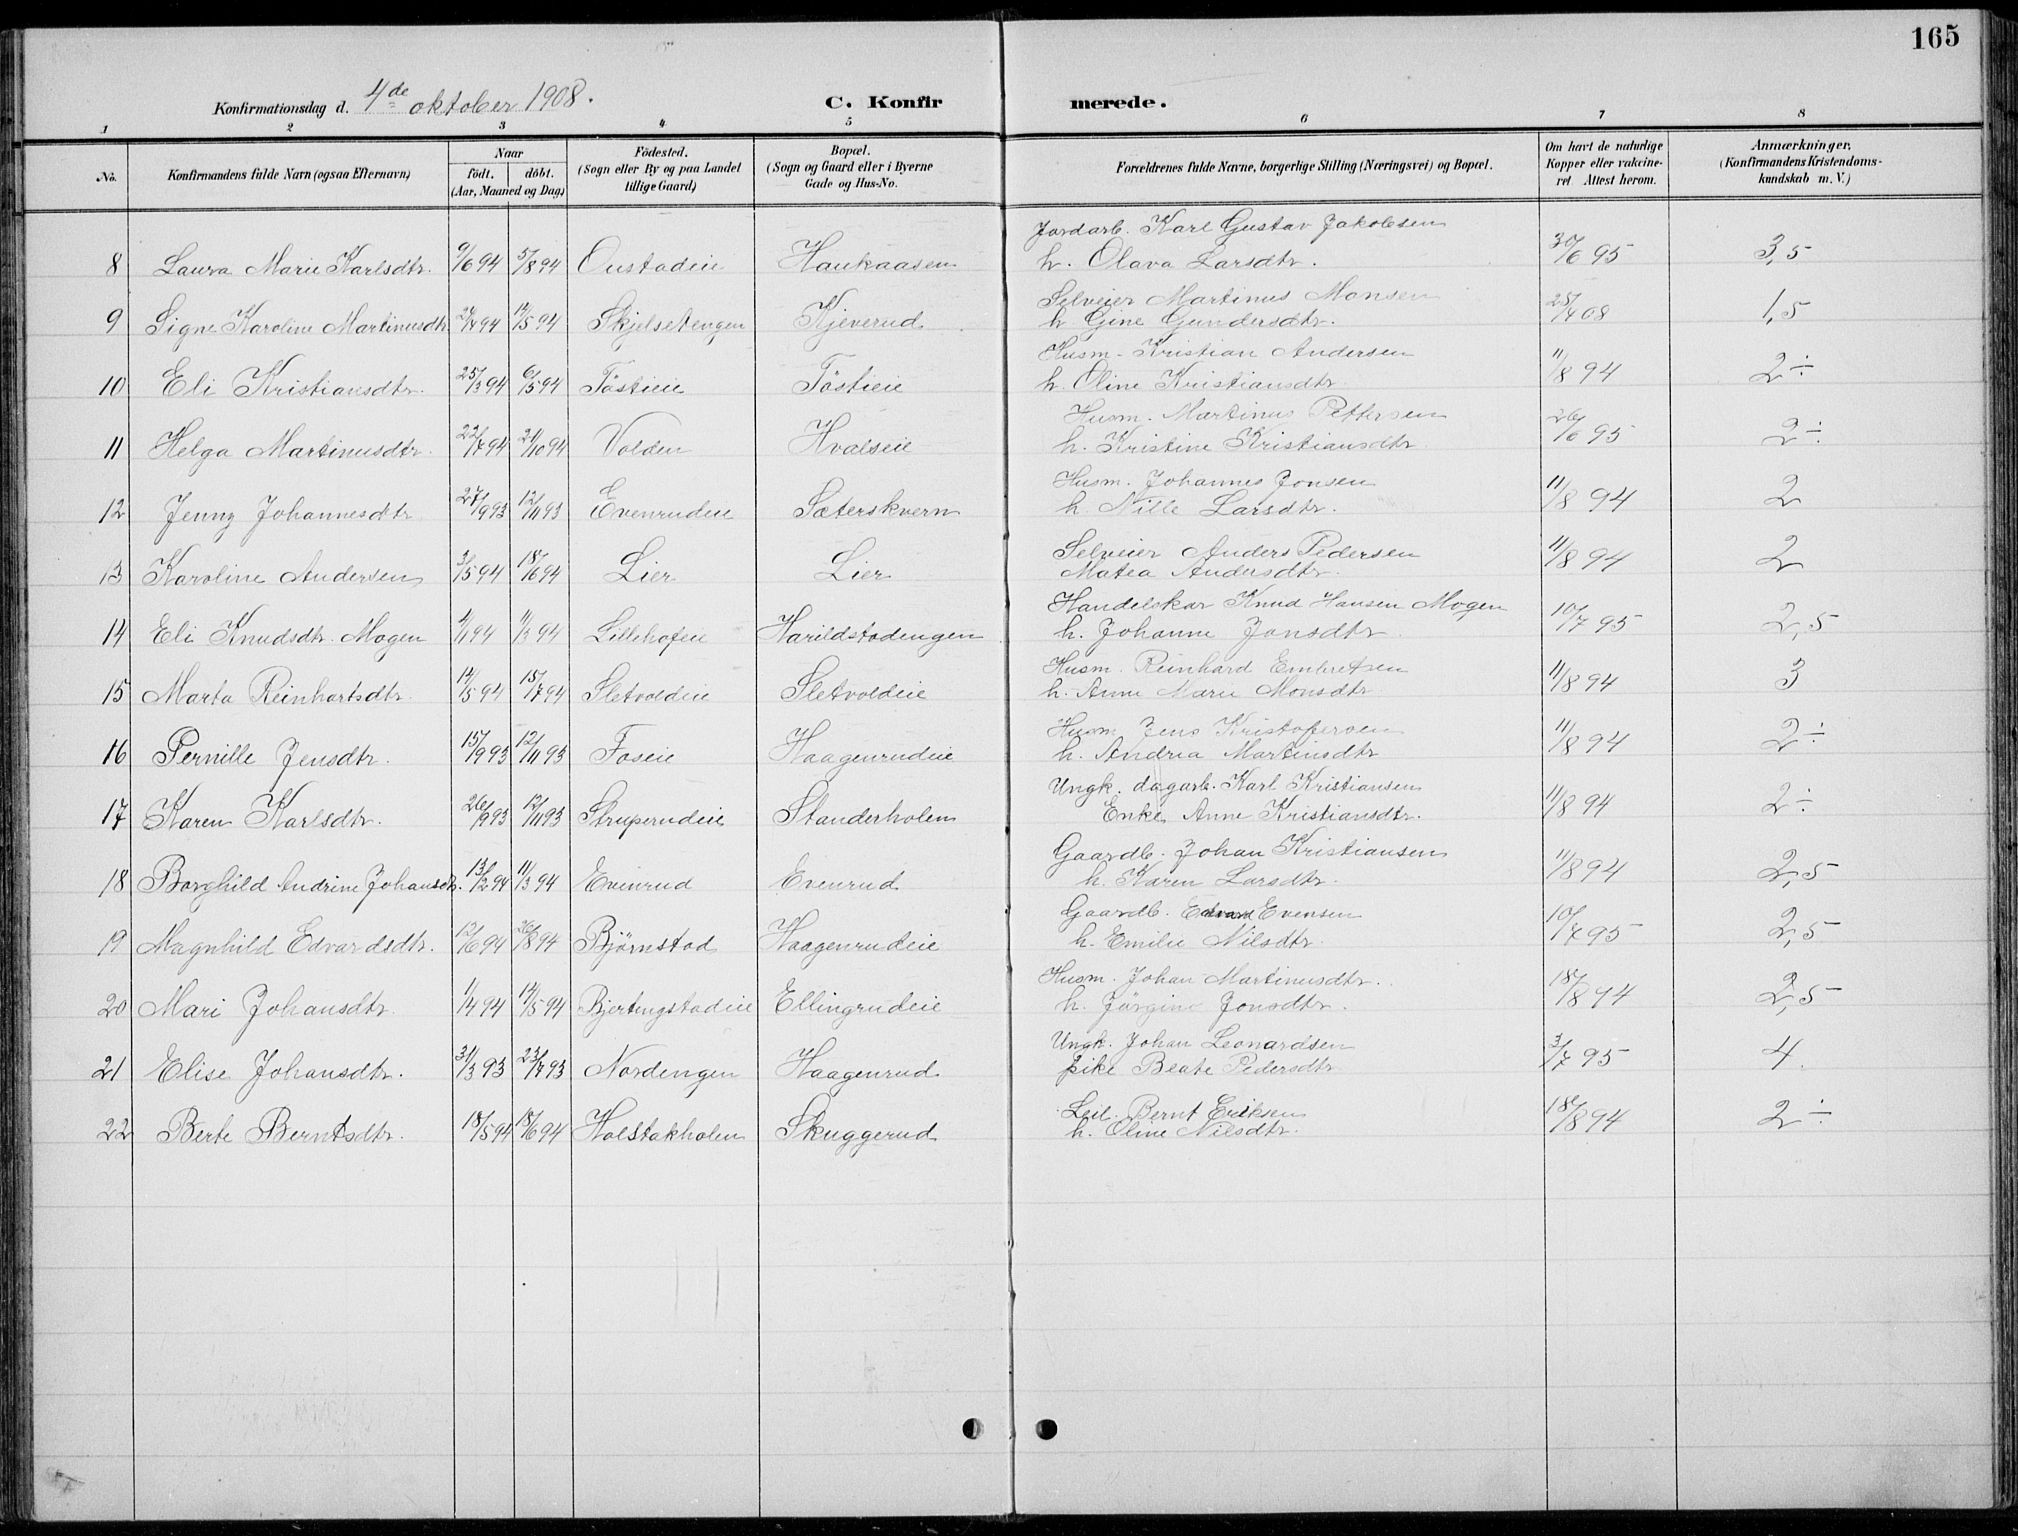 165
Konfirmationsdag d. 4de oktober 1908.
C. Konfirmerede.
1 2 3 4 5 6 7 8
No.
Konfirmandens fulde Navn (ogsaa Efternavn)
Naar
födt. döbt.
(Aar, Maaned og Dag)
Födested.
(Sogn eller By og paa Landet
tillige Gaard)
Bopæl.
(Sogn og Gaard eller i Byerne
Gade og Hus-No.
Forældrenes fulde Navne, borgerlige Stilling (Næringsvei) og Bopæl.
Om havt de naturlige
Kopper eller vakcine-
ret Attest herom.
Anmærkninger.
(Konfirmandens Kristendoms-
kundskab m. V.)
Jordarb. Karl Gustav Jakobsen
8 Laura Marie Karlsdtr. 9/6 94 5/8 94 Onstadeie Haukaasen h. Olava Larsdtr. 30/6 95 3,5
Selveier Martinus Monsen
9 Signe Karoline Martinusdtr 94 14/5 94 Skjelsetengen Kjeverud h Gine Gundersdtr. 25/4 08 1,5
Husm. Kristian Andersen
10 Eli Kristiansdtr. 25/3 94 6/5 94 Töstieie Töstieie h. Oline Kristiansdtr. 11/8 94 2÷
Husm. Martinus Pettersen
11 Helga Martinusdtr. 22/7 94 21/10 94 Volden Hvalseie h. Kristine Kristiansdtr 26/6 95 2÷
Husm. Johannes Jonsen
12 Jenny Johannesdtr 27/9 93 12/11 93 Evenrudeie Sæterskvern h. Nille Larsdtr. 11/8 94 2
Selveier Anders Pedersen
13 Karoline Andersen 3/5 94 18/6 94 Lier Lier Matea Andersdtr. 11/8 94 2
Handelskar Knud Hansen Mogen
14 Eli Knudsdtr. Mogen 4/1 94 11/3 94 Lillehofeie Harildstadengen h. Johanne Jonsdtr. 10/7 95 2,5
Husm. Reinhard Embretsen
15 Marta Reinhartsdtr. 14/5 94 15/7 94 Sletvoldeie Sletvoldeie h. Anne Marie Monsdtr 11/8 94 3
Husm Jens Kristofersen
16 Pernille Jensdtr. 15/9 93 12/11 93 Foseie Haagenrudeie h. Andrea Martinsdtr 11/8 94 2÷
Ungk. dagarb. Karl Kristiansen
17 Karen Karlsdtr. 26/9 93 12/11 93 Struperudeie Standerholen Enke Anne Kristiansdtr. 11/8 94 2÷
Gaardb. Johan Kristiansen
18 Borghild Andrine Johansdtr. 13/2 94 11/3 94 Evenrud Evenrud h. Karen Larsdtr. 11/8 94 2,5
Gaardb. Edvard Evensen
19 Magnhild Edvardsdtr. 12/6 94 26/8 94 Bjørnstad Haagenrudeie h. Emilie Nilsdtr. 10/7 95 2,5
Husm. Johan Martinusdtr.
20 Mari Johansdtr. 1/4 94 14/5 94 Bjertingstadeie Ellingrudeie h. Jörgine Jonsdtr. 18/8 94 2,5
Ungk. Johan Leonardsen
21 Elise Johansdtr. 31/3 93 23/7 93 Nordengen Haagenrud pike Beate Pedersdtr 3/7 95 4.
Leil. Bernt Eriksen
22 Berte Berntsdtr. 18/5 94 18/6 94 Holstakholen Skuggerud h. Oline Nilsdtr. 18/8 94 2÷